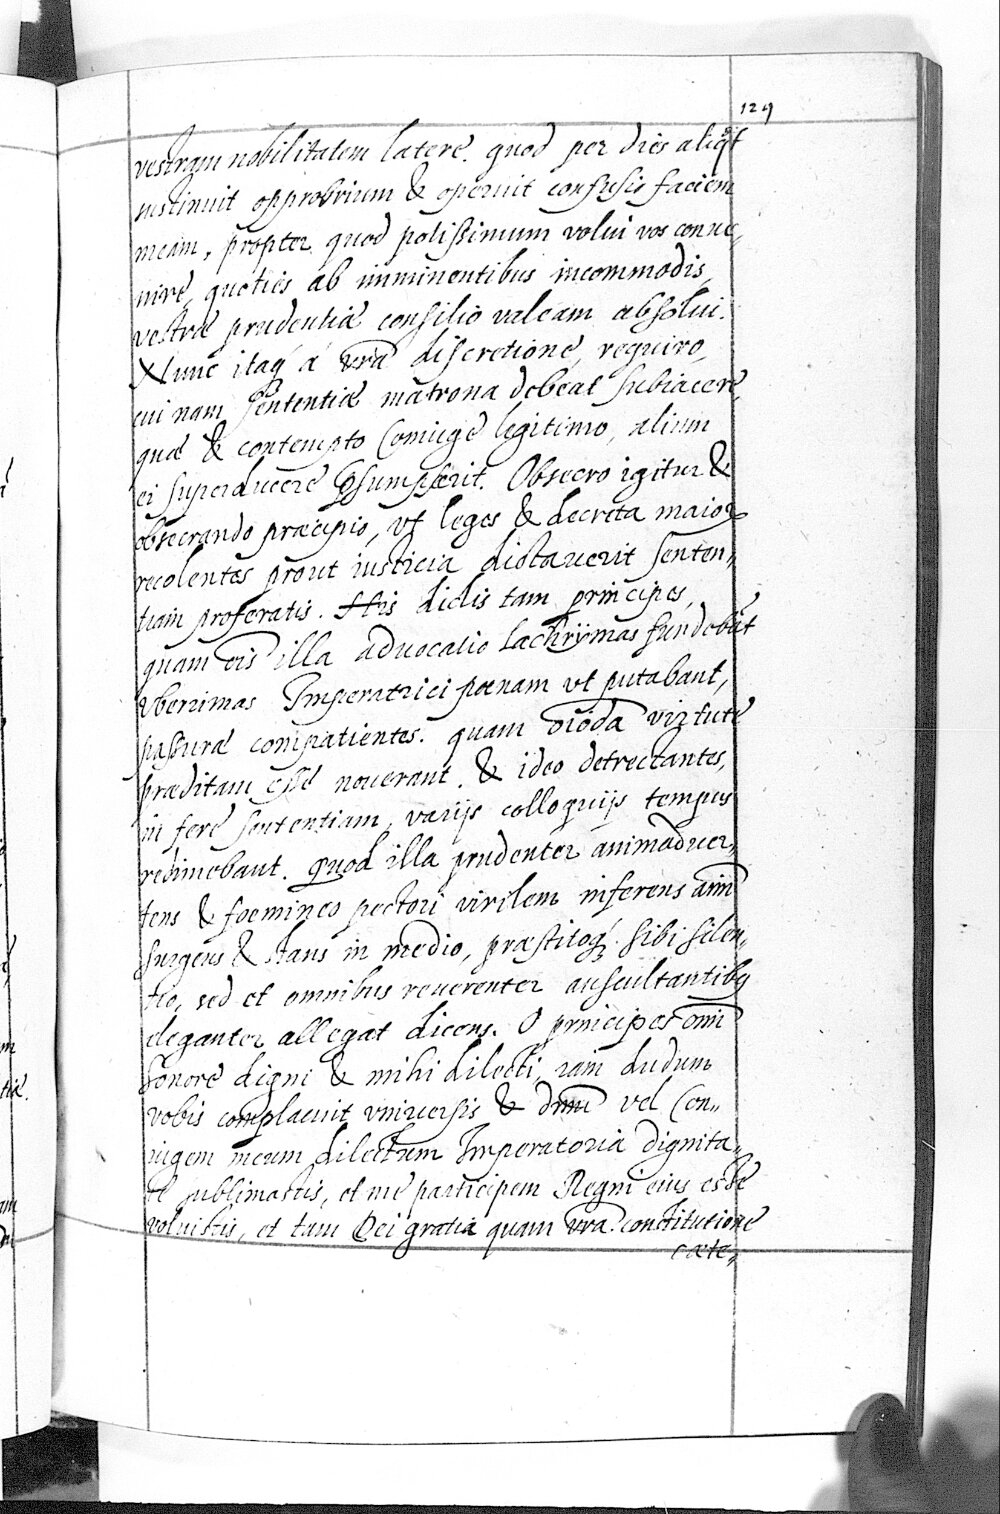 129
vestram nobilitatem latere. quod per dies aliqt
sustinuit opprobrium & operuit confusio faciem
meam, propter quod potissimum volui vos conue„
nire, quoties ab imminentibus incommodis,
vestræ prudentiæ consilio valeam absolui.
Nunc itaq́ á vrã discretione, requiro,
cui nam sententiæ matrona debeat subiacere,
quæ & contempto Coniuge legitimo, alium
ei superducere p̱sumpserit. Obsecro igitur &
obsecrando præcipio, vt leges & decreta maioꝝ
recolentes prout iusticia dictauerit senten„
tiam proferatis. His dictis tam principes,
quam eis illa aduocatio lachrÿmas fundebãt
vberrimas Imperatrici pœnam vt putabant,
passuræ compatientes. quam oiõda virtute
præditam esse nouerant. & ideo detrectantes,
in fere sententiam, varijs colloquijs tempus
redimebant. Quod illa prudenter animaduer„
tens & foemineo pectori virilem inferens aim̃
surgens & stans in medio, præstitoq́ sibi silen„
tio, sed et omnibus reuerenter auscultantibꝙ
eleganter allegat dicens. O principes om̃i
honore digni & mihi dilecti, iam dudum
vobis complacuit vniuersis & dñm̃ vel Con„
iugem meum dilectum Imperatoria dignita„
te sublimastis, et me participem Regni eius esse
voluistis, et tam Dei gratia quam vrã constitutione
cæte„